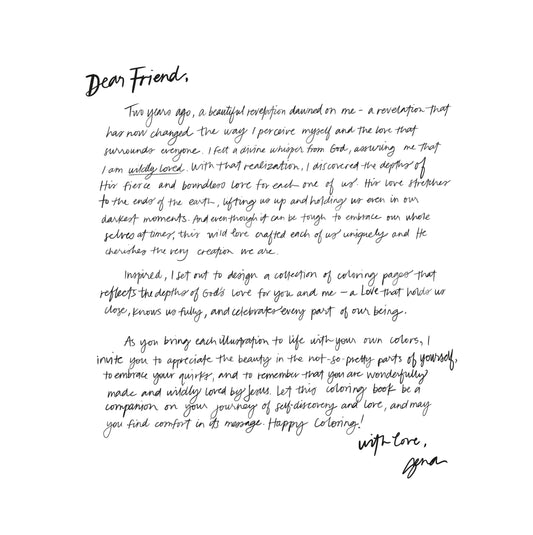 Dear Friend,
Two years ago, a beautiful revelation dawned on me - a revelation that
has now changed the way I perceive myself and the love that
surrounds everyone. I felt a divine whisper from God, assuring me that
I am wildly loved. With that realization, I discovered the depths of
His fierce and boundless love for each one of us. His love stretches
to the ends of the earth, lifting us up and holding us even in our
darkest moments. And even though it can be tough to embrace our whole
selves at times, this wild love crafted each of us uniquely and He
cherishes the very creation we are.
Inspired, I set out to design a collection of coloring pages that
reflects the depths of God's love for you and me - a love that holds us
close, knows us fully, and celebrates every part of our being.
As you bring each illustration to life with your own colors, I
invite you to appreciate the beauty in the not-so-pretty parts of yourself,
to embrace your quirks, and to remember that you are wonderfully
made and wildly loved by Jesus. Let this coloring book be a
companion on your journey of self-discovery and love, and may
you find comfort in its message. Happy Coloring!
with love,
Jena